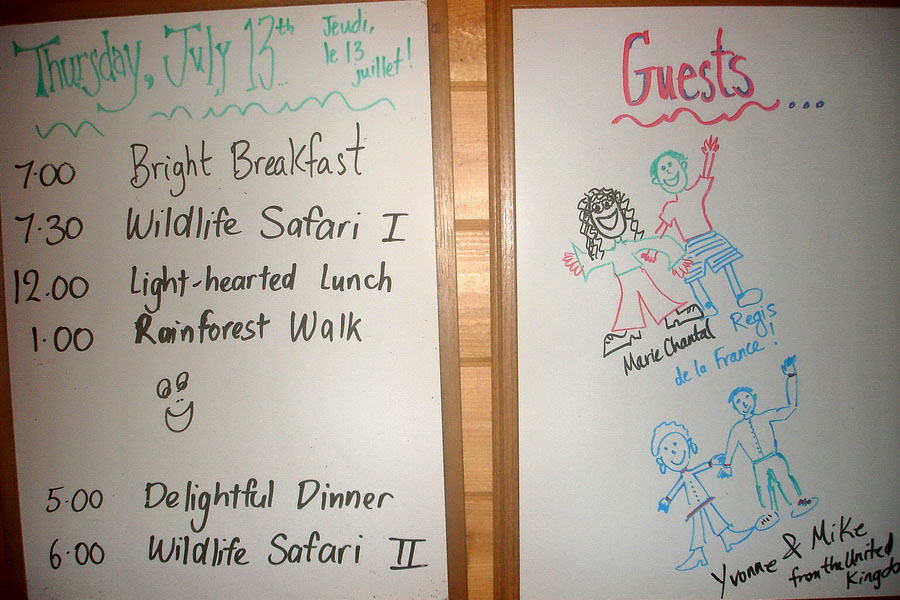 Thursday, July 13th...
Jeudi,
le 13
juillet!
7.00 Bright Breakfast
7.30 Wildlife Safari I
12.00 Light-hearted Lunch
1.00 Rainforest Walk
5.00 Delightful Dinner
6.00 Wildlife Safari II
Guests...
Marie Chantal Regis
de la France!
Yvonne & Mike
from the United
Kingdo